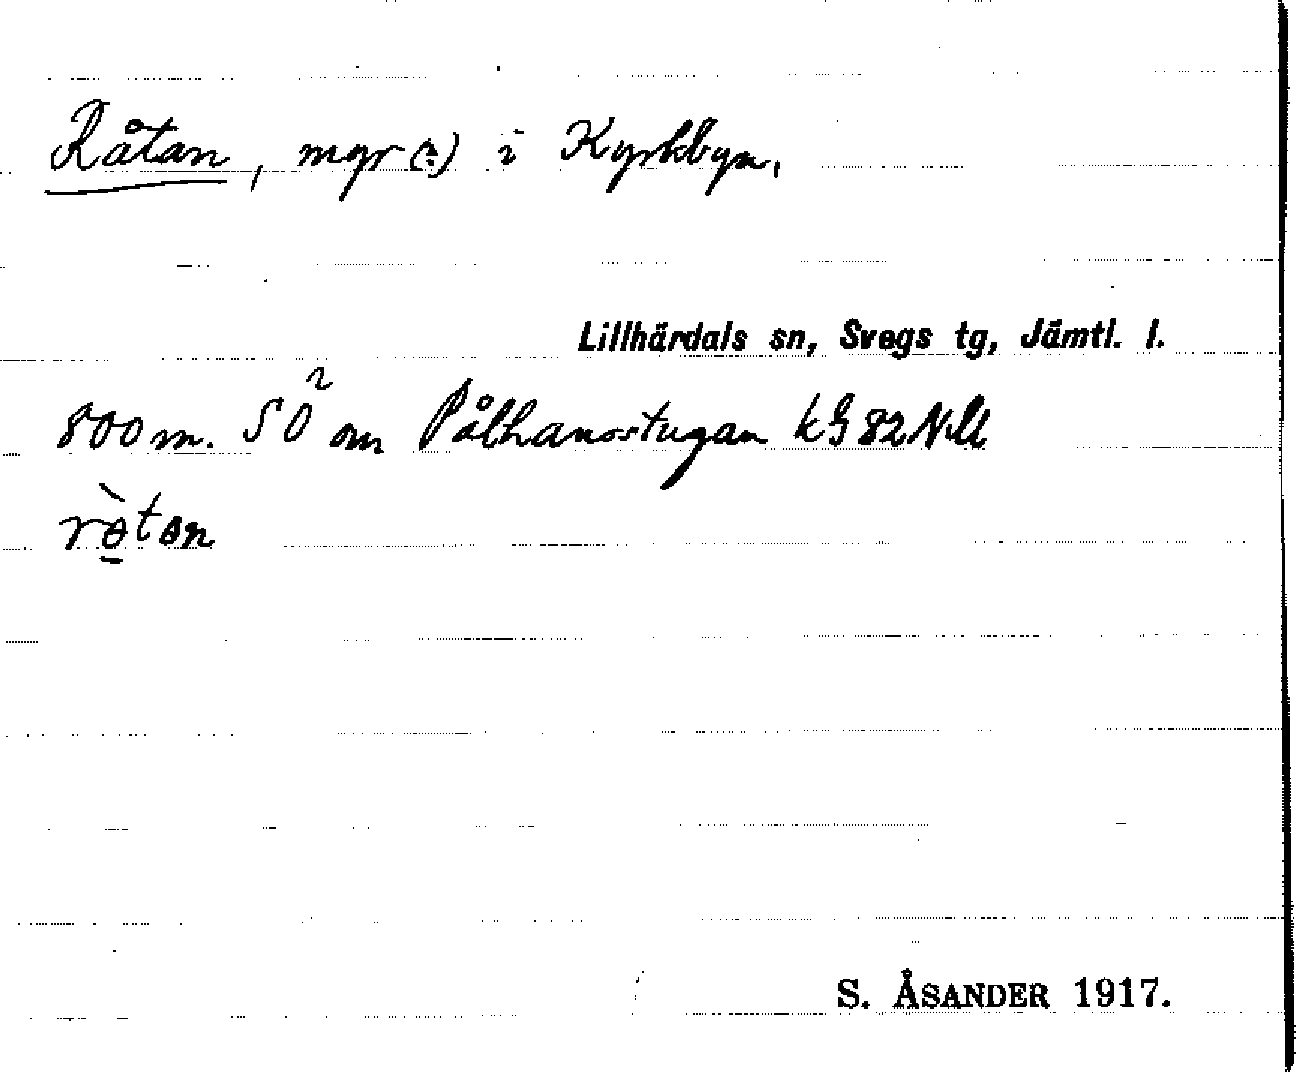 Råtan, mgr (?) i Kyrkbyn.
Lillhärdals sn, Svegs tg, Jämtl. l.
800 m. SO² om Pålhanostugan kG 82 NM
rə̀tən
S. ÅSANDER 1917.